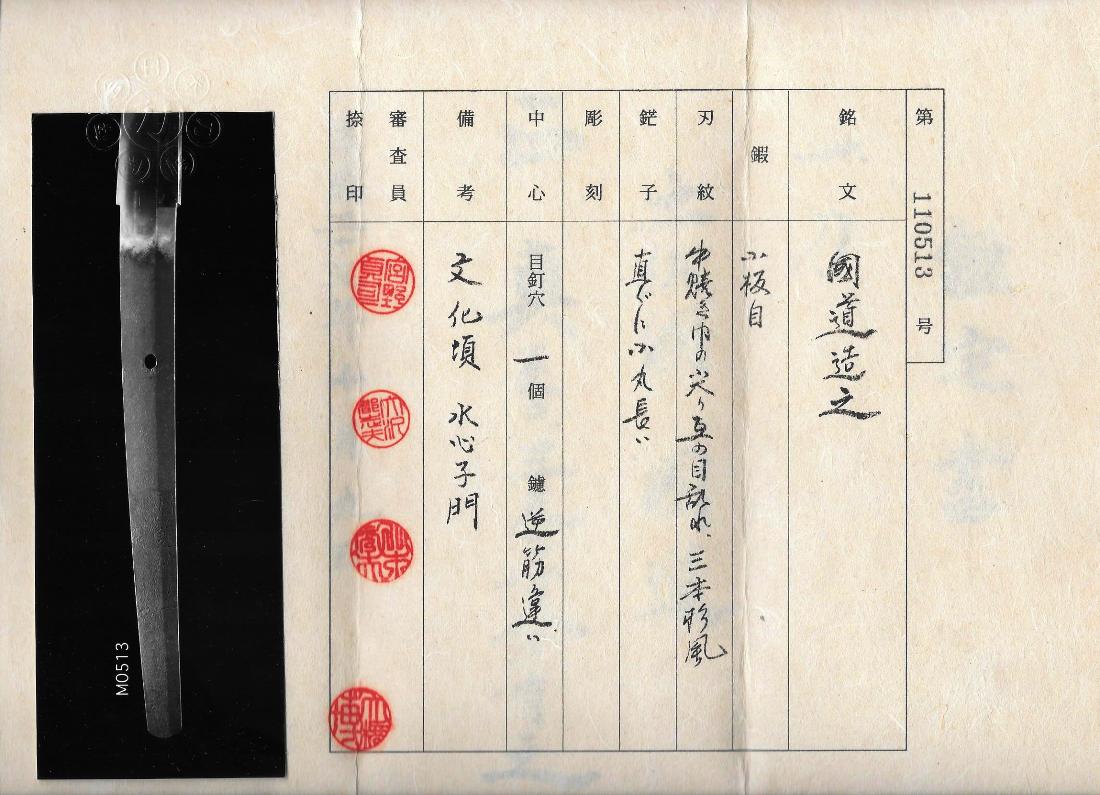 第 110513 号
銘文
國道造之
鍜
小板目
刃紋
中焼き巾の小尖り互の目乱れ、三本杉風
鋩子
真ぐに小丸長い
彫刻
中心
目釘穴 一個 鑢 逆筋違い
備考
文化頃 水心子門
審査員
捺印
M0513